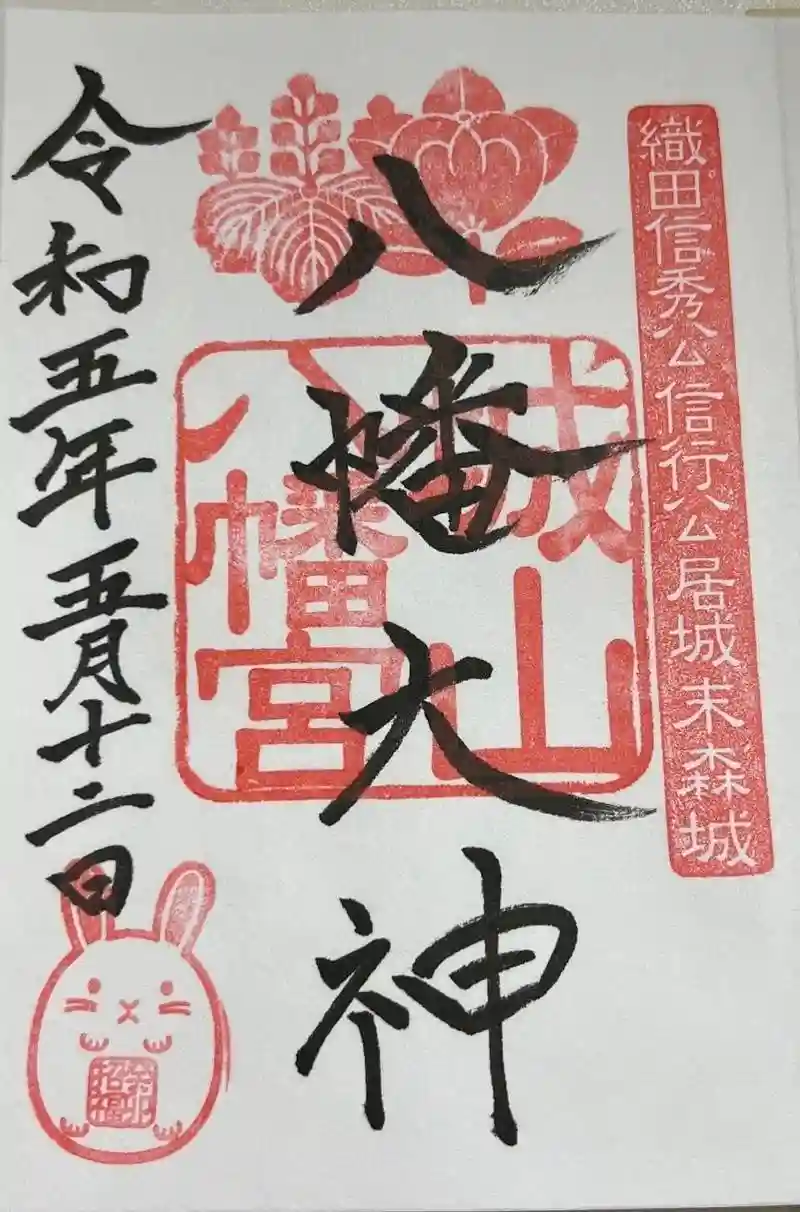 織田信秀公信行公居城末森城
八幡大神
城山
八幡宮
令和五年五月十二日
癸卯
招福